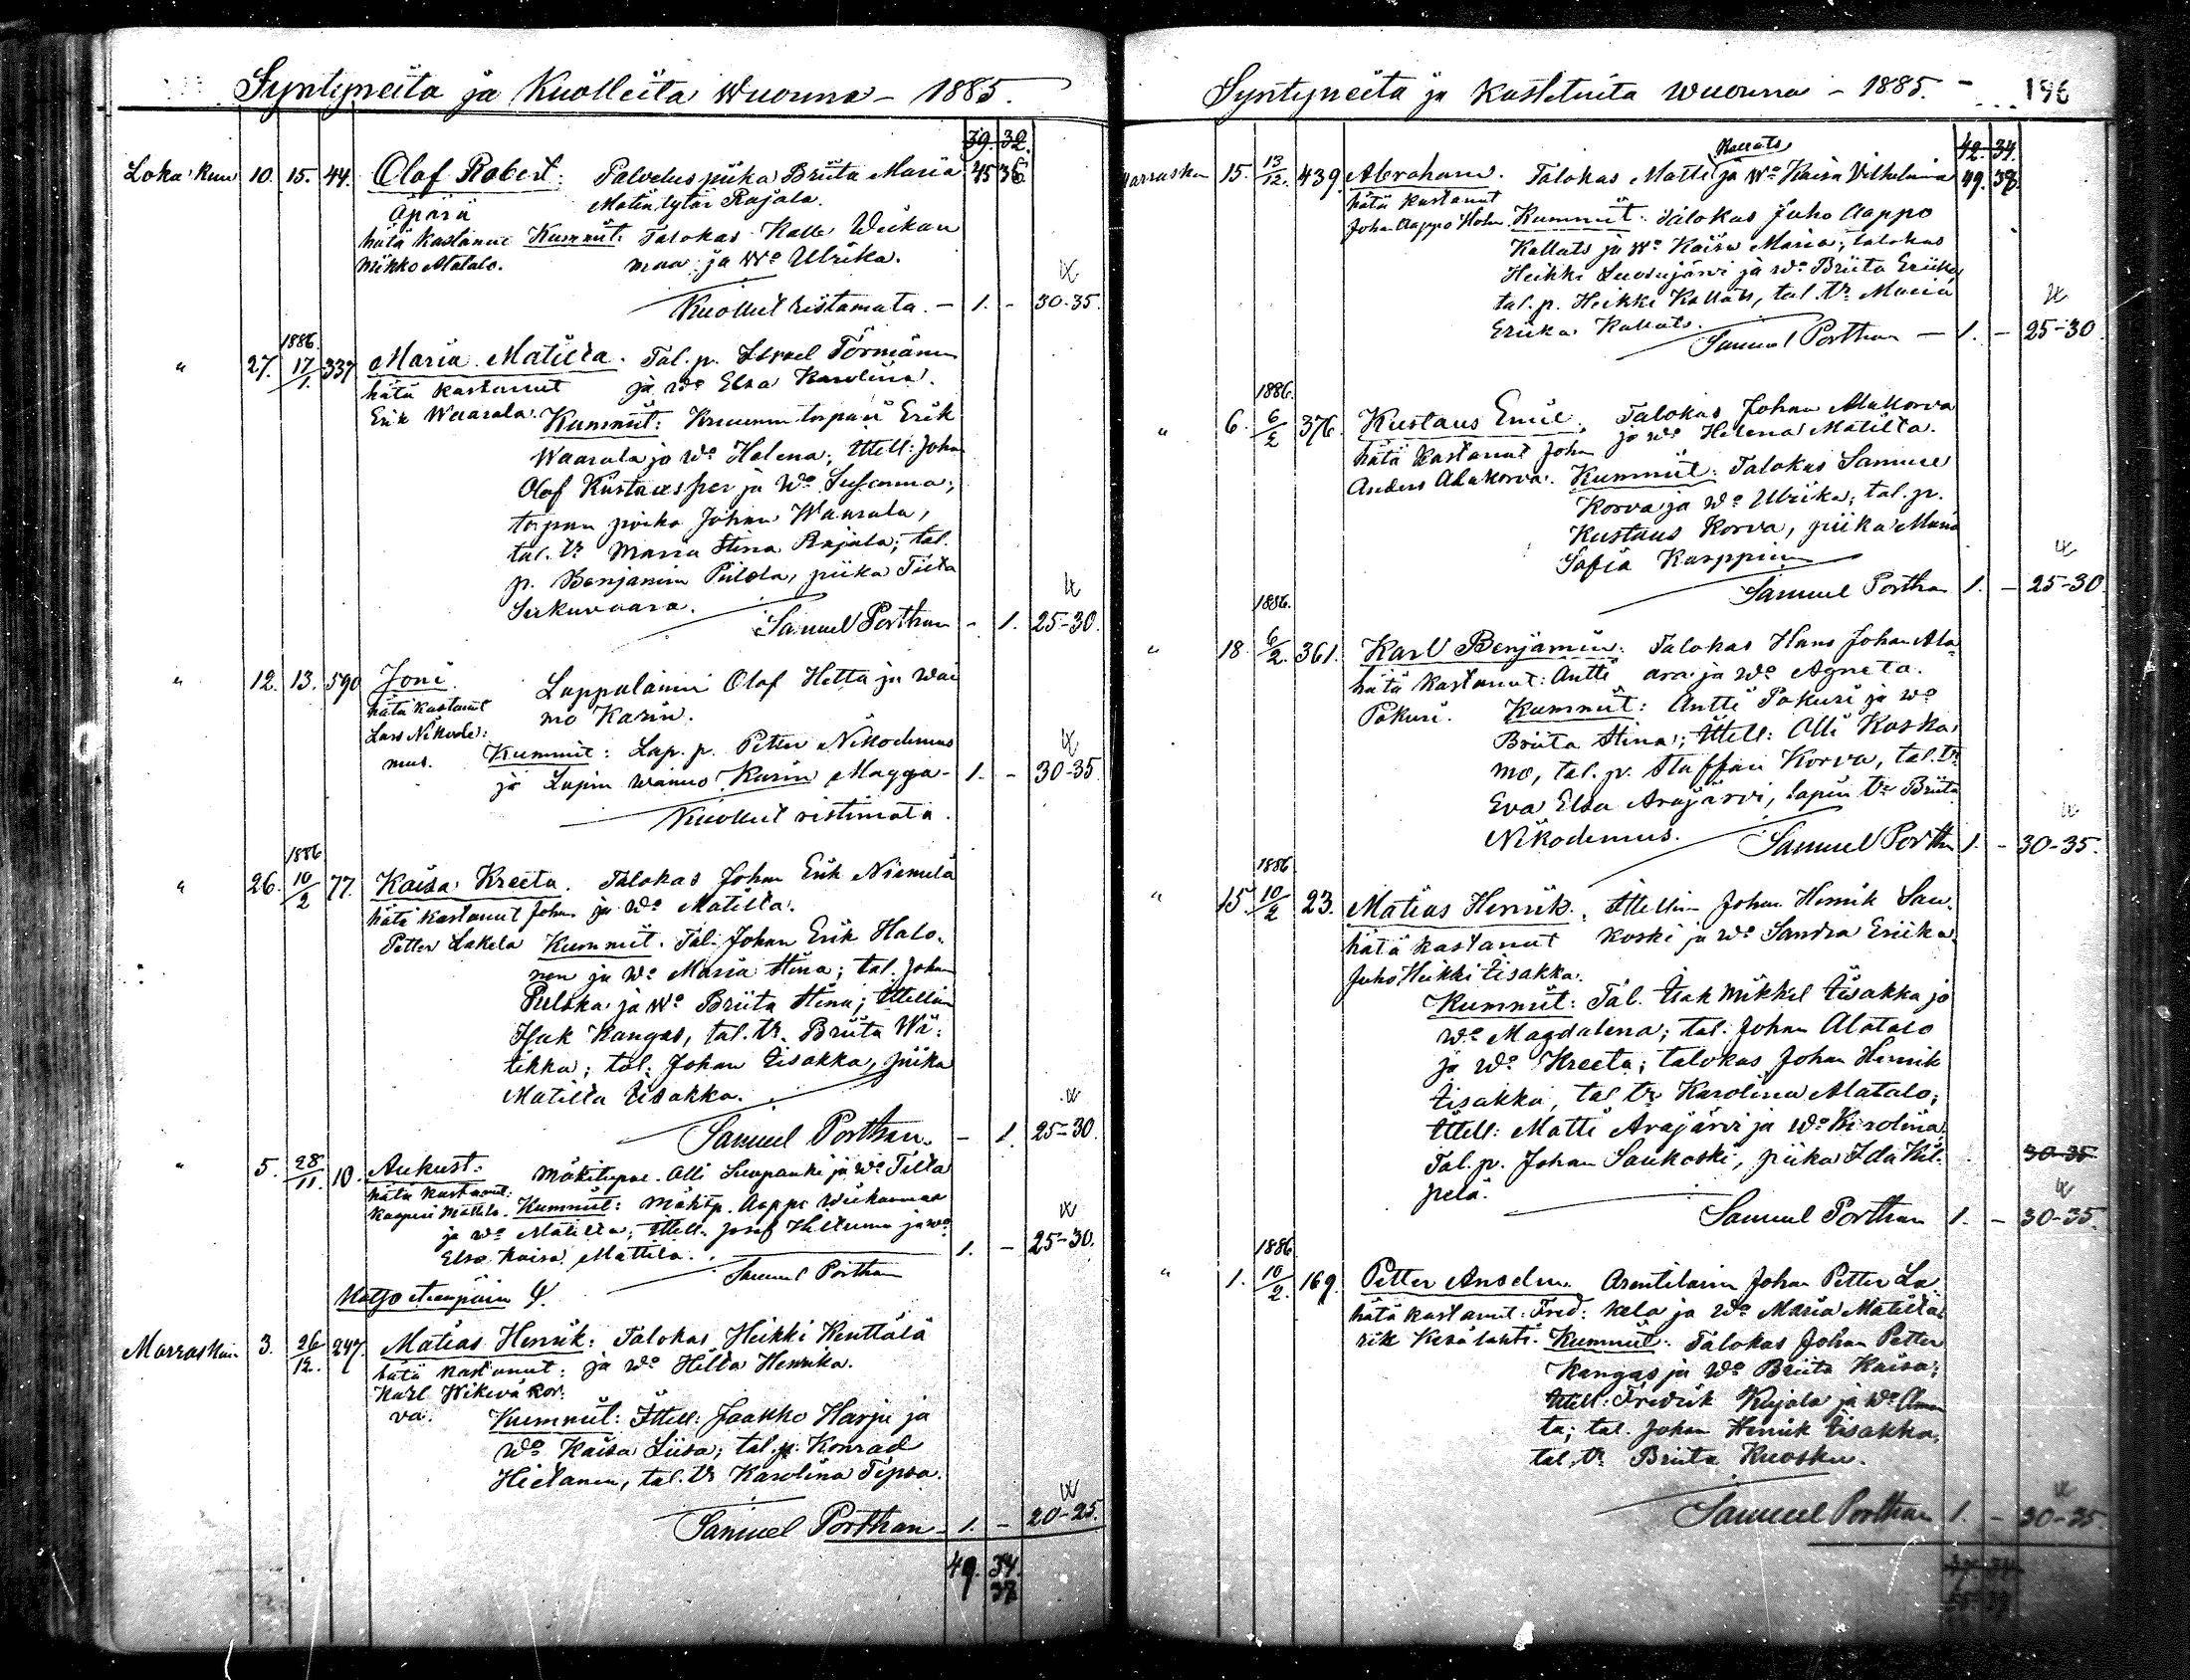 Syntyneitä ja Kuolleita Wuonna - 1885.
39. 32.
Loka Kuu 10. 15. 44. Olaf Robert: Palvelus piika Briita Maria 45 36.
Äpärä Matin tytär Rajala.
hätä kastanut Kummit: Talokas Kalle Wiikan
Mikko Alatalo. maa ja Wo Ulrika.
Kuollut ristimata. - 1. - 30-35.
1886.
" 27. 17/1. 337 Maria Matilta. Tal. p. Israel Törmänen
hätä kastanut ja wo Elsa Karolina.
Erik Waarala. Kummit: Kruunun torpari Erik
Waarala ja Wo Helena; Ittell: Johan
Olaf Kustaasper ja Wo Susanna;
torpan poika Johan Waarala,
tal. tr Maria Stina Rajala; tal.
p. Benjamin Piilola, piika Tilta
Sirkuvaara.
Samuel Porthan - 1. 25-30.
" 12. 13. 590 Joni. Lappalainen Olaf Hetta ja wai
hätä kastanut mo Karin.
Lars Nikode:
mus. Kummit: Lap. p. Petter Nikodemus
ja Lapin waimo Karin Magga - 1. - 30-35.
Kuollut ristimata.
1886
" 26. 10/2 77. Kaisa Kreeta. Talokas Johan Erik Niemelä
hätä kastanut Johan ja wo Matilta.
Petter Lakela Kummit. Tal. Johan Erik Halo-
nen ja wo Maria Stina; tal. Johan
Pulska ja wo Briita Stina; Ittellin
Isak Kangas, tal. tr. Briita Wii-
tikka; tal. Johan Iisakka, piika
Matilta Iisakka.
Samuel Porthan. - 1. 25-30.
" 5. 28/11. 10. Aukust: Mökitupne. Olli Suopanki ja wo Tilta
hätä kastanut:
Kasperi Mattila. Kummit: Mökitp. Aappo Wiikanmaa
ja wo Matilta; Ittell. Josef Hiltunen ja wo
Elsa Kaisa Mattila. 1. - 25-30.
Samuel Porthan
Katso eteenpäin
Marraskuu 3. 26/12. 247. Matias Henrik: Talokas Heikki Kenttälä
hätä kastanut: ja wo Hilta Henrika.
Karl Wikeväkor:
va. Kummit: Ittell: Jaakko Harju ja
wo Kaisa Liisa; tal. p. Konrad
Hietanen, tal. tr Karolina Tepsa.
Samuel Porthan - 1. - 20-25.
49. 34.
38
Syntyneitä ja Kastetuita wuonna - 1885. - 196
Kallats 42. 34.
Marraskuu 15. 13/12. 439. Abraham. Talokas Matti ja Wo Kaisa Vilhelmina 49. 38.
hätä kastanut
Johan Aappo Holm. Kummit: Talokas Juho Aappo
Kallats ja wo Kaisa Maria; talokas
Heikki Suosujärvi ja wo Briita Eriika,
tal. p. Heikki Kallats, tal. tr. Maria
Eriika Kallats.
Samuel Porthan - 1. - 25-30.
1886.
" 6. 6/2 376. Kustaus Emil. Talokas Johan Alakorva
hätä kastanut Johan ja wo Helena Matilta.
Anders Alakorva. Kummit: Talokas Samuel
Korva ja wo Ulrika; tal. p.
Kustaus Korva, piika Maria
Sofia Karppinen
Samuel Porthan 1. - 25-30
1886.
" 18. 6/2. 361. Karl Benjamin: Talokas Hans Johan Ala-
hätä kastanut: Antti ara ja wo Agneta.
Pokuri. Kummit: Antti Pokuri ja wo
Briita Stina; Ittell: Olli Koska-
mo, tal. p. Staffan Korva, tal. tr.
Eva Elsa Arajärvi, lapin tr. Briita
Nikodemus. Samuel Porthn 1. - 30-35.
1886
" 15. 10/2 23. Matias Henrik. Ittellin Johan Henrik Sau-
hätä kastanut koski ja wo Sandra Eriika.
Juho Heikki Iisakka.
Kummit: Tal. Isak Mikkel Iisakka ja
wo Magdalena; tal. Johan Alatalo
ja wo Kreeta; talokas Johan Henrik
Iisakka, tal tr Karolina Alatalo;
Ittell: Matti Arajärvi ja wo Karolina,
Tal. p. Johan Saukoski, piika Ida Kil- 30-35
pelä.
Samuel Porthan 1. - 30-35.
1886
" 1. 10/2. 169. Petter Anselm. Arentilainen Johan Petter La-
hätä kastanut: Fred: kela ja wo Maria Matilta.
rik Kesälahti. Kummit: Talokas Johan Petter
Kangas ja wo Briita Kaisa;
Ittell: Fredrik Kujala ja wo Aman
ta; tal. Johan Henrik Iisakka,
tal. tr. Briita Kuosku.
Samuel Porthan 1. - 30-35.
55 39